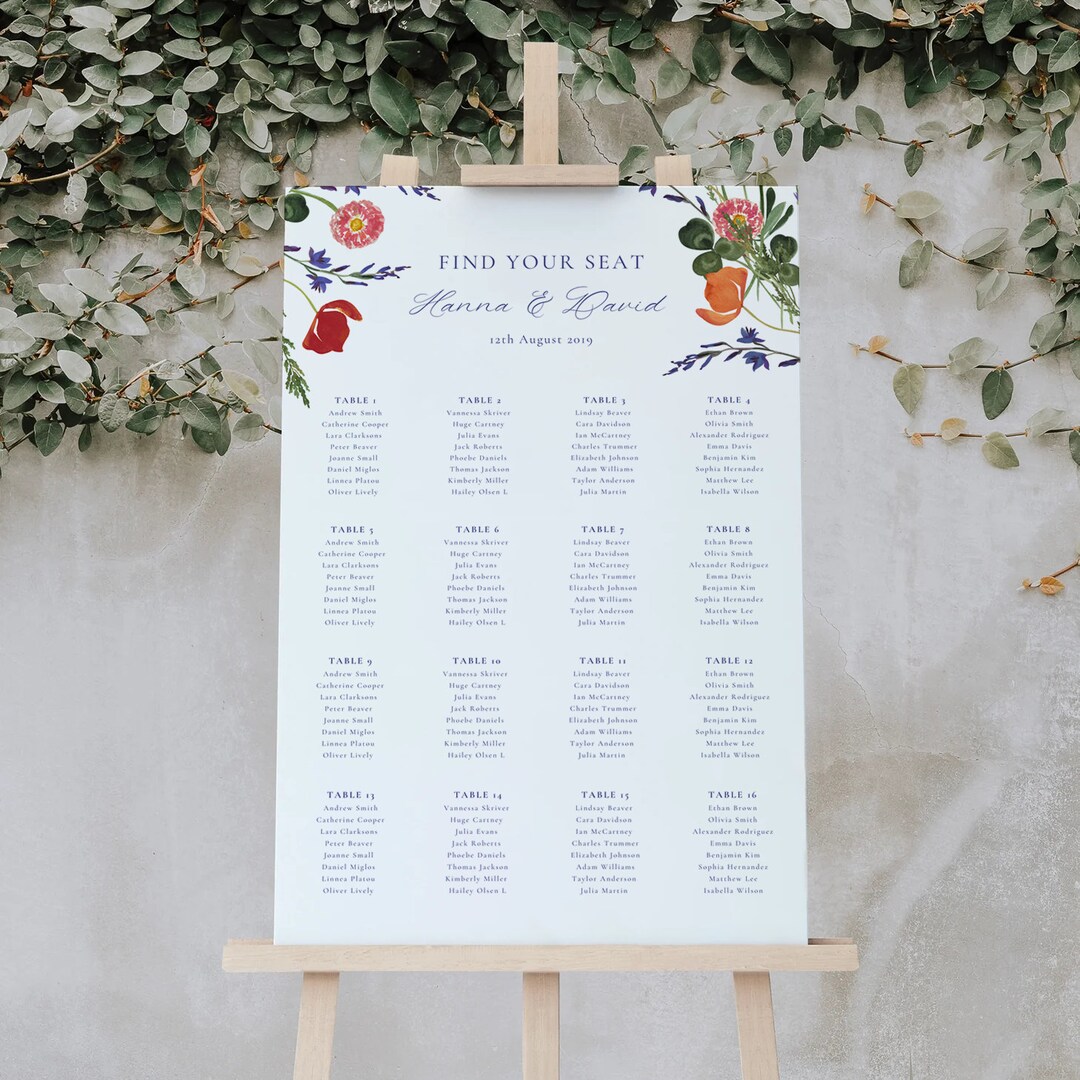 FIND YOUR SEAT
Hanna & David
12th August 2019
TABLE 1
Andrew Smith
Catherine Cooper
Lara Clarksons
Peter Beaver
Joanne Small
Daniel Miglos
Linnea Platou
Oliver Lively
TABLE 2
Vannessa Skriver
Huge Cartney
Julia Evans
Jack Roberts
Phoebe Daniels
Thomas Jackson
Kimberly Miller
Hailey Olsen L
TABLE 3
Lindsay Beaver
Cara Davidson
Ian McCartney
Charles Trummer
Elizabeth Johnson
Adam Williams
Taylor Anderson
Julia Martin
TABLE 4
Ethan Brown
Olivia Smith
Alexander Rodriguez
Emma Davis
Benjamin Kim
Sophia Hernandez
Matthew Lee
Isabella Wilson
TABLE 5
Andrew Smith
Catherine Cooper
Lara Clarksons
Peter Beaver
Joanne Small
Daniel Miglos
Linnea Platou
Oliver Lively
TABLE 6
Vannessa Skriver
Huge Cartney
Julia Evans
Jack Roberts
Phoebe Daniels
Thomas Jackson
Kimberly Miller
Hailey Olsen L
TABLE 7
Lindsay Beaver
Cara Davidson
Ian McCartney
Charles Trummer
Elizabeth Johnson
Adam Williams
Taylor Anderson
Julia Martin
TABLE 8
Ethan Brown
Olivia Smith
Alexander Rodriguez
Emma Davis
Benjamin Kim
Sophia Hernandez
Matthew Lee
Isabella Wilson
TABLE 9
Andrew Smith
Catherine Cooper
Lara Clarksons
Peter Beaver
Joanne Small
Daniel Miglos
Linnea Platou
Oliver Lively
TABLE 10
Vannessa Skriver
Huge Cartney
Julia Evans
Jack Roberts
Phoebe Daniels
Thomas Jackson
Kimberly Miller
Hailey Olsen L
TABLE 11
Lindsay Beaver
Cara Davidson
Ian McCartney
Charles Trummer
Elizabeth Johnson
Adam Williams
Taylor Anderson
Julia Martin
TABLE 12
Ethan Brown
Olivia Smith
Alexander Rodriguez
Emma Davis
Benjamin Kim
Sophia Hernandez
Matthew Lee
Isabella Wilson
TABLE 13
Andrew Smith
Catherine Cooper
Lara Clarksons
Peter Beaver
Joanne Small
Daniel Miglos
Linnea Platou
Oliver Lively
TABLE 14
Vannessa Skriver
Huge Cartney
Julia Evans
Jack Roberts
Phoebe Daniels
Thomas Jackson
Kimberly Miller
Hailey Olsen L
TABLE 15
Lindsay Beaver
Cara Davidson
Ian McCartney
Charles Trummer
Elizabeth Johnson
Adam Williams
Taylor Anderson
Julia Martin
TABLE 16
Ethan Brown
Olivia Smith
Alexander Rodriguez
Emma Davis
Benjamin Kim
Sophia Hernandez
Matthew Lee
Isabella Wilson